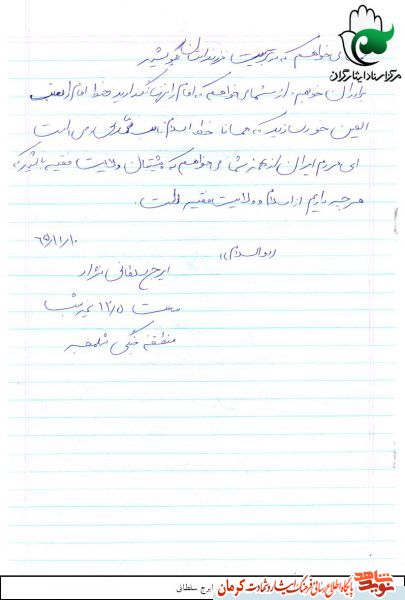 مرکز اسناد ایثارگران
می‌خواهم که در تربیت فرزندانتان بکوشید
برادران خوبم از شما می‌خواهم که امام را تنها نگذارید خط امام را نصب
العین خود سازید که همانا خط اسلام ناب محمدی است
ای مردم ایران از همه شما می‌خواهم که پشتیبان ولایت فقیه باشید که
هر چه داریم از اسلام و ولایت فقیه است.
والسلام
۶۵/۱۱/۱۰
ایرج سلطانی نژاد
ساعت ۱۲/۵ نیمه شب
منطقه جنگی شلمچه
نوید شاهد
پایگاه اطلاع رسانی فرهنگ ایثار و شهادت کرمان
ایرج سلطانی